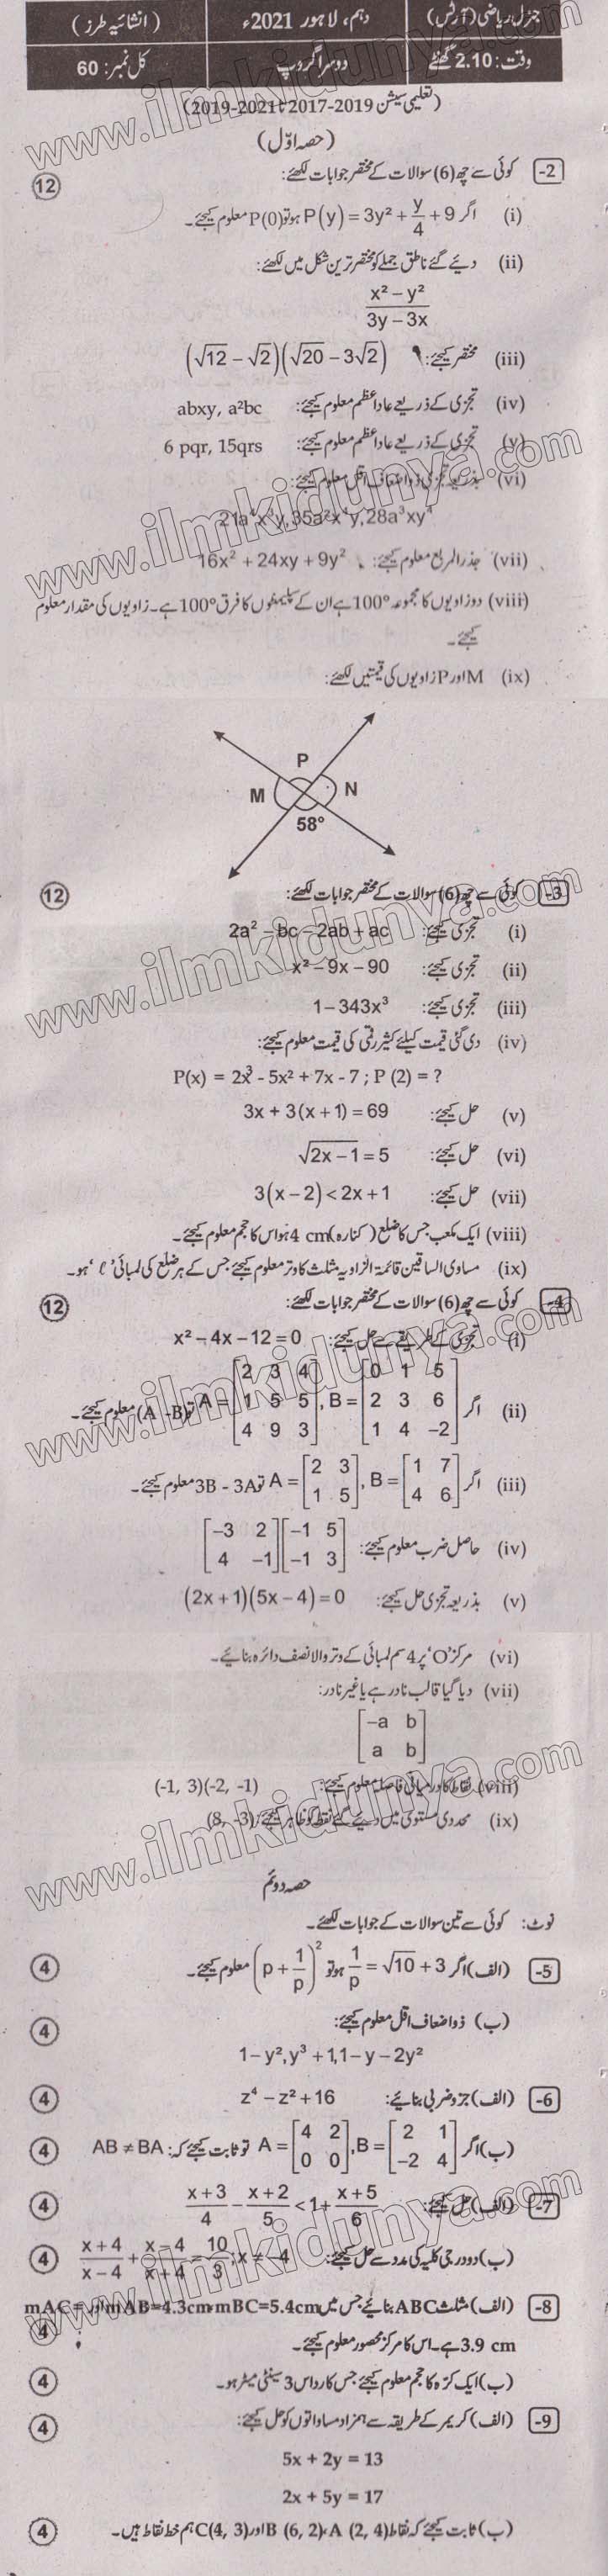 جنرل ریاضی (آرٹس) دہم، لاہور 2021ء (انشائیہ طرز)
وقت: 2.10 گھنٹے دوسرا گروپ کل نمبر: 60
(تعلیمی سیشن 2019-2017 تا 2021-2019)
(حصہ اوّل)
2- کوئی سے چھ (6) سوالات کے مختصر جوابات لکھئے: 12
(i) اگر P(y) = 3y² + y/4 + 9 ہو تو P(0) معلوم کیجئے۔
(ii) دیئے گئے ناطق جملے کو مختصر ترین شکل میں لکھئے:
x² – y² / 3y – 3x
(iii) مختصر کیجئے: (√12 – √2)(√20 – 3√2)
(iv) تجزی کے ذریعے عاداعظم معلوم کیجئے: abxy, a²bc
(v) تجزی کے ذریعے عاداعظم معلوم کیجئے: 6 pqr, 15qrs
(vi) بذریعہ تجزی ذواضعاف اقل معلوم کیجئے:
21a⁴x³y, 35a²x⁴y, 28a³xy⁴
(vii) جذرالمربع معلوم کیجئے: 16x² + 24xy + 9y²
(viii) دو زاویوں کا مجموعہ 100° ہے ان کے سپلیمنٹوں کا فرق 100° ہے۔ زاویوں کی مقدار معلوم
کیجئے۔
(ix) M اور P زاویوں کی قیمتیں لکھئے:
P
M N
58°
3- کوئی سے چھ (6) سوالات کے مختصر جوابات لکھئے: 12
(i) تجزی کیجئے: 2a² – bc – 2ab + ac
(ii) تجزی کیجئے: x² – 9x – 90
(iii) تجزی کیجئے: 1 – 343x³
(iv) دی گئی قیمت کیلئے کثیر رقمی کی قیمت معلوم کیجئے:
P(x) = 2x³ - 5x² + 7x - 7 ; P (2) = ?
(v) حل کیجئے: 3x + 3(x + 1) = 69
(vi) حل کیجئے: √(2x – 1) = 5
(vii) حل کیجئے: 3(x – 2) < 2x + 1
(viii) ایک مکعب جس کا ضلع (کنارہ) 4 cm ہو اس کا حجم معلوم کیجئے۔
(ix) مساوی الساقین قائمۃ الزاویہ مثلث کا وتر معلوم کیجئے جس کے ہر ضلع کی لمبائی 'ℓ' ہو۔
4- کوئی سے چھ (6) سوالات کے مختصر جوابات لکھئے: 12
(i) تجزی کے طریقے سے حل کیجئے: x² – 4x – 12 = 0
(ii) اگر A = [2 3 4; 1 5 5; 4 9 3], B = [0 1 5; 2 3 6; 1 4 –2] تو (A - B) معلوم کیجئے۔
(iii) اگر A = [2 3; 1 5], B = [1 7; 4 6] تو 3B - 3A معلوم کیجئے۔
(iv) حاصل ضرب معلوم کیجئے: [–3 2; 4 –1][–1 5; –1 3]
(v) بذریعہ تجزی حل کیجئے: (2x + 1)(5x – 4) = 0
(vi) مرکز 'O' پر 4 سم لمبائی کے وتر والا نصف دائرہ بنائیے۔
(vii) دیا گیا قالب نادر ہے یا غیر نادر:
[–a b; a b]
(viii) نقاط کا درمیانی فاصلہ معلوم کیجئے: (-1, 3)(-2, -1)
(ix) محددی مستوی میں دیئے گئے نقطہ کو ظاہر کیجئے: (8, -3)
حصہ دوئم
نوٹ: کوئی سے تین سوالات کے جوابات لکھئے۔
5- (الف) اگر 1/p = √10 + 3 ہو تو (p + 1/p)² معلوم کیجئے۔ 4
(ب) ذواضعاف اقل معلوم کیجئے: 4
1 – y², y³ + 1, 1 – y – 2y²
6- (الف) جزو ضربی بنائیے: z⁴ – z² + 16 4
(ب) اگر A = [4 2; 0 0], B = [2 1; –2 4] تو ثابت کیجئے کہ: AB ≠ BA 4
7- (الف) حل کیجئے: x + 3/4 – x + 2/5 < 1 + x + 5/6 4
(ب) دو درجی کلیہ کی مدد سے حل کیجئے: x + 4/x – 4 + x – 4/x + 4 = 10/3 ; x ≠ –4 4
8- (الف) مثلث ABC بنائیے جس میں mBC=5.4cm، mAB=4.3cm اور mAC=
3.9 cm ہے۔ اس کا مرکز محصور معلوم کیجئے۔ 4
(ب) ایک کرّہ کا حجم معلوم کیجئے جس کا رداس 3 سینٹی میٹر ہو۔ 4
9- (الف) کریمر کے طریقہ سے ہمزاد مساواتوں کو حل کیجئے: 4
5x + 2y = 13
2x + 5y = 17
(ب) ثابت کیجئے کہ نقاط A (2, 4)، B (6, 2) اور C(4, 3) ہم خط نقاط ہیں۔ 4
www.ilmkidunya.com
www.ilmkidunya.com
www.ilmkidunya.com
www.ilmkidunya.com
www.ilmkidunya.com
www.ilmkidunya.com